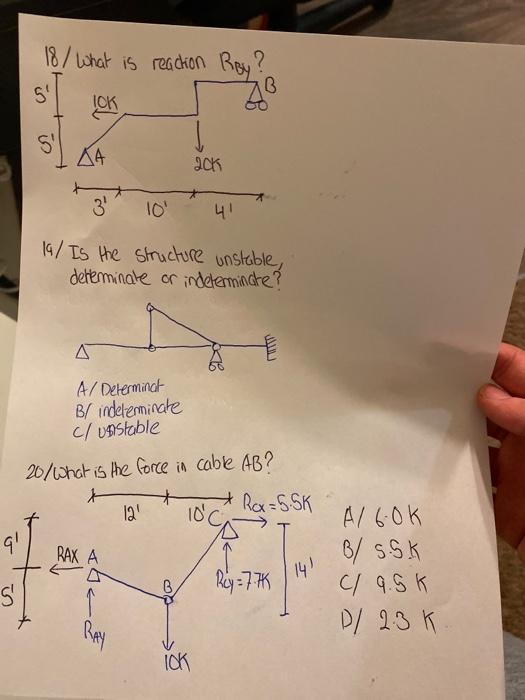 18/ What is reaction RBy?
5'
10K
B
5'
A
20K
3' 10' 4'
19/ Is the structure unstable,
determinate or indeterminate?
A/ Determinat
B/ indeterminate
C/ unstable
20/ What is the force in cable AB?
12' 10' C RCX = 5.5K
9' RAX A
B
RCY = 7.7K 14'
5'
RAY
10K
A/ 6.0 K
B/ 5.5 K
C/ 9.5 K
D/ 2.3 K